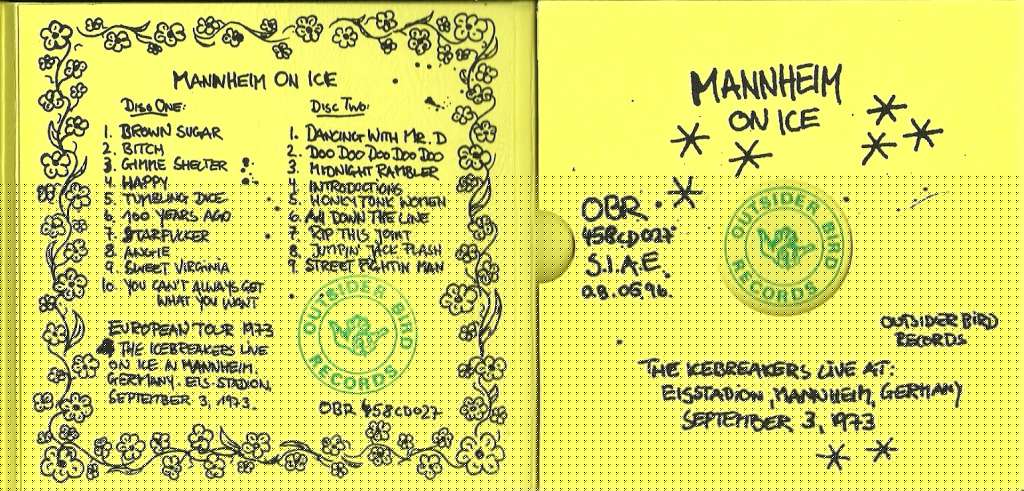 MANNHEIM ON ICE
DISC ONE:
1. BROWN SUGAR
2. BITCH
3. GIMME SHELTER
4. HAPPY
5. TUMBLING DICE
6. 100 YEARS AGO
7. STARFUCKER
8. ANGIE
9. SWEET VIRGINIA
10. YOU CAN'T ALWAYS GET
WHAT YOU WANT
EUROPEAN TOUR 1973
THE ICEBREAKERS LIVE
ON ICE IN MANNHEIM.
GERMANY. EIS-STADION,
SEPTEMBER 3, 1973.
DISC TWO:
1. DANCING WITH MR. D
2. DOO DOO DOO DOO DOO
3. MIDNIGHT RAMBLER
4. INTRODUCTIONS
5. HONEY TONK WOMEN
6. ALL DOWN THE LINE
7. RIP THIS JOINT
8. JUMPIN' JACK FLASH
9. STREET FIGHTIN MAN
OUTSIDER BIRD
RECORDS
OBR 458CD027
MANNHEIM
ON ICE
OBR.
458CD027
S.I.A.E.
28.05.96.
OUTSIDER BIRD
RECORDS
OUTSIDER BIRD
RECORDS
THE ICEBREAKERS LIVE AT:
EISSTADION, MANNHEIM, GERMANY
SEPTEMBER 3, 1973